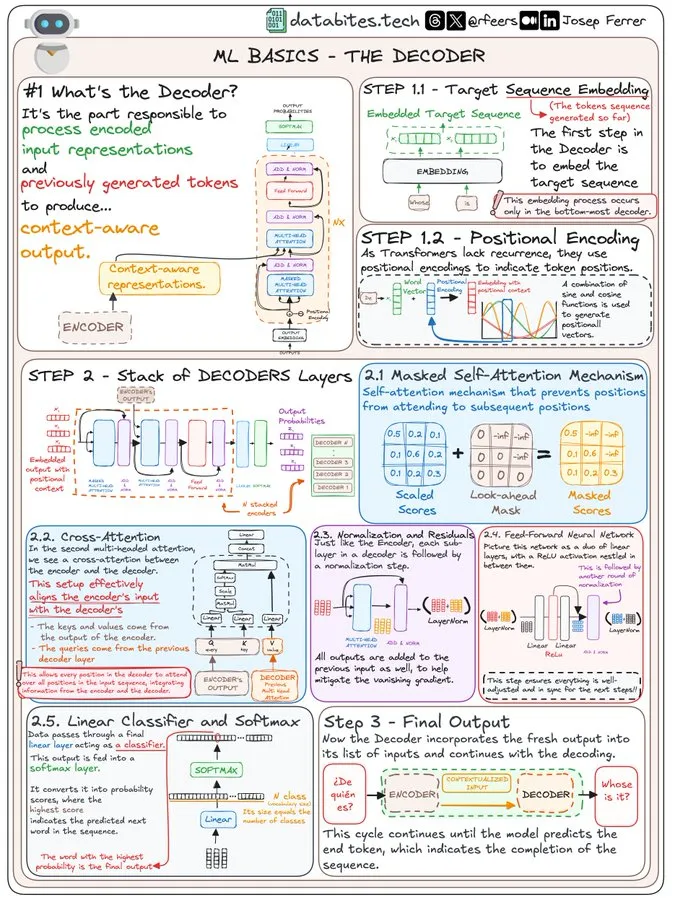 databites.tech @rfeers Josep Ferrer
ML BASICS - THE DECODER
#1 What's the Decoder?
It's the part responsible to
process encoded
input representations
and
previously generated tokens
to produce...
context-aware
output.
OUTPUT
PROBABILITIES
SOFTMAX
LINEAR
ADD & NORM
Feed Forward
ADD & NORM
MULTI-HEAD
ATTENTION
NX
ADD & NORM
MASKED
MULTI-HEAD
ATTENTION
Positional
Encoding
OUTPUT
EMBEDDING
OUTPUTS
Context-aware
representations.
ENCODER
STEP 1.1 - Target Sequence Embedding
Embedded Target Sequence
(The tokens sequence
generated so far)
EMBEDDING
Whose
is
The first step in
the Decoder is
to embed the
target sequence
This embedding process occurs
only in the bottom-most decoder.
STEP 1.2 - Positional Encoding
As Transformers lack recurrence, they use
positional encodings to indicate token positions.
Word
Vector
Positional
Encoding
Embedding with
positional context
A combination of
sine and cosine
functions is used
to generate
positionall
vectors.
STEP 2 - Stack of DECODERS Layers
ENCODER'S
OUTPUT
Embedded
output with
positional
context
MULTI-HEAD
ATTENTION
ADD & NORM
MULTI-HEAD
ATTENTION
ADD & NORM
Feed
Forward
ADD & NORM
LINEAR SOFTMAX
Output
Probabilities
DECODER N
DECODER 3
DECODER 2
DECODER 1
N stacked
encoders
2.1 Masked Self-Attention Mechanism
Self-attention mechanism that prevents positions
from attending to subsequent positions
0.5 0.2 0.1
0.1 0.6 0.2
0.1 0.2 0.3
+
0 -inf -inf
0 0 -inf
0 0 0
=
0.5 -inf -inf
0.1 0.6 -inf
0.1 0.2 0.3
Scaled
Scores
Look-ahead
Mask
Masked
Scores
2.2. Cross-Attention
In the second multi-headed attention,
we see a cross-attention between
the encoder and the decoder.
This setup effectively
aligns the encoder's input
with the decoder's
- The keys and values come from
the output of the encoder.
- The queries come from the previous
decoder layer
This allows every position in the decoder to attend
over all positions in the input sequence, integrating
information from the encoder and the decoder.
Linear
Concat
MatMul
SoftMax
Scale
MatMul
Linear
Linear
Linear
Q
query
K
key
V
value
ENCODER'S
OUTPUT
DECODER
Previous
Multi Head Attention
2.3. Normalization and Residuals
Just like the Encoder, each sub-
layer in a decoder is followed by
a normalization step.
LayerNorm
MULTI-HEAD
ATTENTION
ADD & NORM
All outputs are added to the
previous input as well, to help
mitigate the vanishing gradient.
2.4. Feed-Forward Neural Network
Picture this network as a duo of linear
layers, with a ReLU activation nestled in
between them.
This is followed by
another round of
normalization
LayerNorm
Linear
Linear
ReLu
ADD & NORM
LayerNorm
This step ensures everything is well-
adjusted and in sync for the next steps!!
2.5. Linear Classifier and Softmax
Data passes through a final
linear layer acting as a classifier.
This output is fed into a
softmax layer.
It converts it into probability
scores, where the
highest score
indicates the predicted next
word in the sequence.
The word with the highest
probability is the final output
SOFTMAX
Linear
N class
(vocabulary size)
Its size equals the
number of classes
Step 3 - Final Output
Now the Decoder incorporates the fresh output into
its list of inputs and continues with the decoding.
¿De
quién
es?
ENCODER
CONTEXTUALIZED
INPUT
DECODER
Whose
is it?
This cycle continues until the model predicts the
end token, which indicates the completion of the
sequence.